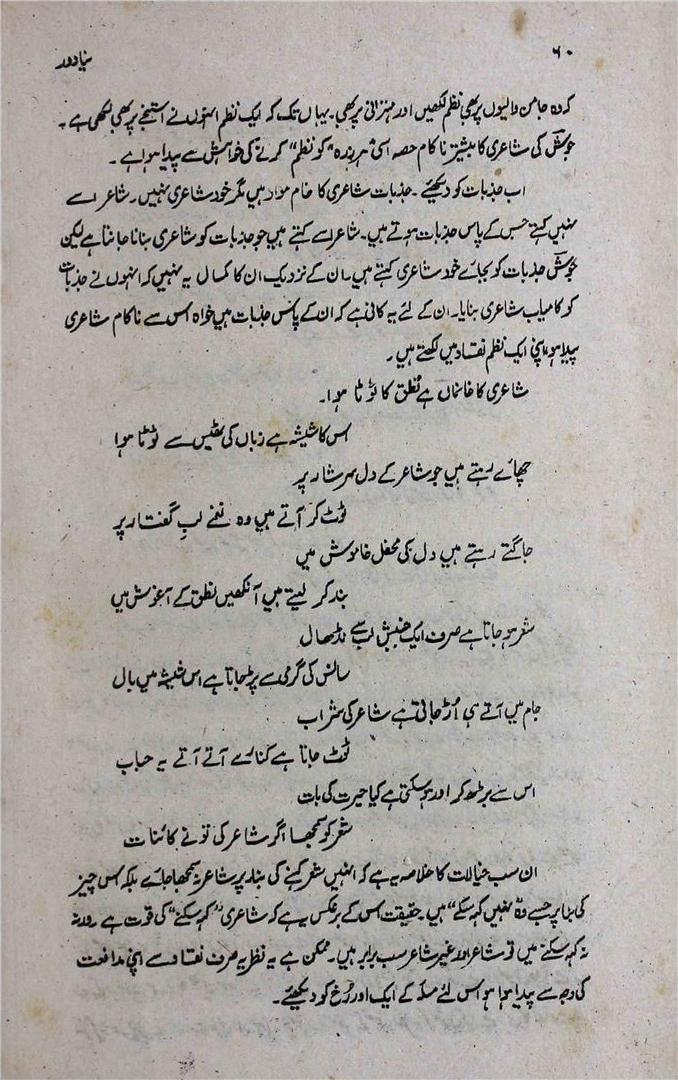 ۶۰
نیا دور
کہ وہ جامن والیوں پر بھی نظم لکھیں اور مہترانی پر بھی۔ یہاں تک کہ ایک نظم انہوں نے استنجے پر بھی لکھی ہے۔
جوشؔ کی شاعری کا بیشتر ناکام حصہ اسی "ہر بندہ" کو نظم" کرنے کی خواہش سے پیدا ہوا ہے۔
اب جذبات کو دیکھئے۔ جذبات شاعری کا خام مواد ہیں مگر خود شاعری نہیں۔ شاعر اسے
نہیں کہتے جس کے پاس جذبات ہوتے ہیں۔ شاعر اسے کہتے ہیں جو جذبات کو شاعری بنانا جانتا ہے لیکن
جوشؔ جذبات کو بجائے خود شاعری کہتے ہیں۔ ان کے نزدیک ان کا کمال یہ نہیں کہ انہوں نے جذبات
کو کامیاب شاعری بنایا۔ ان کے لئے یہ کافی ہے کہ ان کے پاس جذبات ہیں خواہ اس سے ناکام شاعری
پیدا ہو، اپنی ایک نظم نقاد میں لکھتے ہیں۔
شاعری کا خانماں ہے نُطق کا لوٹا ہوا۔
اس کا شیشہ ہے زباں کی ٹھیس سے ٹوٹا ہوا
چھائے رہتے ہیں جو شاعر کے دل سرشار پر
ٹوٹ کر آتے ہیں وہ نغمے لبِ گفتار پر
جاگتے رہتے ہیں دل کی محفل خاموش میں
بند کر لیتے ہیں آنکھیں نطق کے آغوش میں
شعر ہو جاتا ہے صرف ایک جنبش لب سے نڈھال
سانس کی گرمی سے پڑ جاتا ہے اس شیشہ میں بال
جام میں آتے ہی اُڑ جاتی ہے شاعر کی شراب
ٹوٹ جاتا ہے کنارے آتے آتے یہ حباب
اس سے بڑھ کر اور ہو سکتی ہے کیا حیرت کی بات
شعر کو سمجھا اگر شاعر کی تو نے کائنات
ان سب خیالات کا خلاصہ یہ ہے کہ انہیں شعر کہنے کی بنا پر شاعر نہ سمجھا جائے بلکہ اس چیز
کی بنا پر جسے وہ "نہیں کہہ سکے" ہیں۔ حقیقت اس کے برعکس یہ ہے کہ شاعری "کہہ سکنے" کی قوت ہے ورنہ
نہ کہہ سکنے میں تو شاعر اور غیر شاعر سب برابر ہیں۔ ممکن ہے یہ نظریہ صرف نقاد سے اپنی مدافعت
کی وجہ سے پیدا ہوا ہو اس لئے مسئلہ کے ایک اور رُخ کو دیکھئے۔